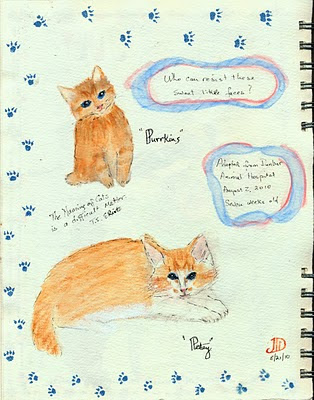 Who can resist those
Sweet little faces?
"Purrkins"
Adopted from Dunbar
Animal Hospital
August 2, 2010
Seven weeks old
The Naming of Cats
is a difficult Matter
T.S. Eliot
8/21/10